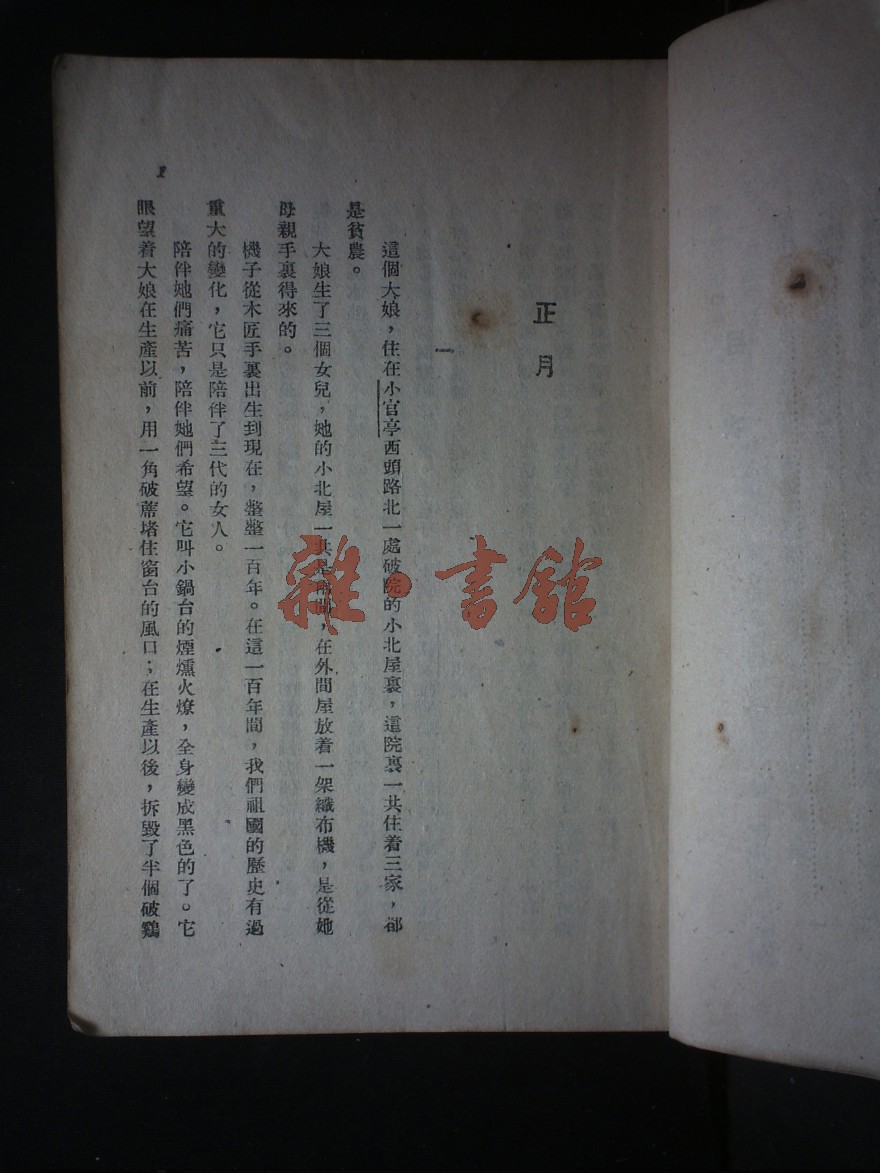 正月
一
這個大娘，住在小官亭西頭路北一處破院的小北屋裏，這院裏一共住着三家，都
是貧農。
大娘生了三個女兒，她的小北屋一共是兩間，在外間屋放着一架織布機，是從她
母親手裏得來的。
機子從木匠手裏出生到現在，整整一百年。在這一百年間，我們祖國的歷史有過
重大的變化，它只是陪伴了三代的女人。
陪伴她們痛苦，陪伴她們希望。它叫小鍋台的煙燻火燎，全身變成黑色的了。它
眼望着大娘在生產以前，用一角破蓆堵住窗台的風口；在生產以後，拆毀了半個破鷄
1
雜·書館